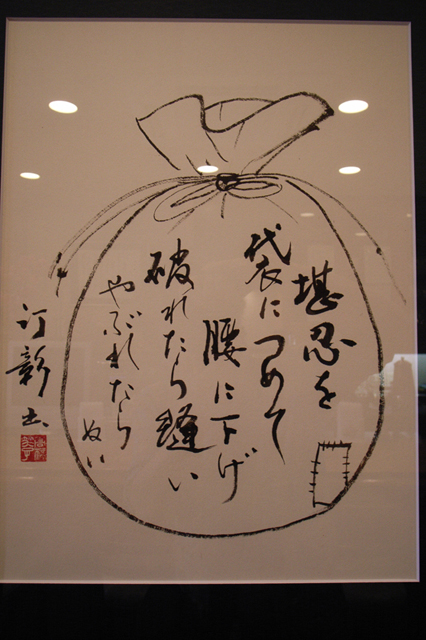 堪忍を
袋につめて
腰に下げ
破れたら縫い
やぶれたら
ぬい